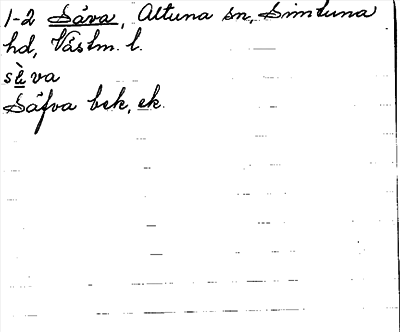 1-2 Säva, Altuna sn, Simtuna
hd, Västm. l.
sè̱va
Säfva bek, ek.